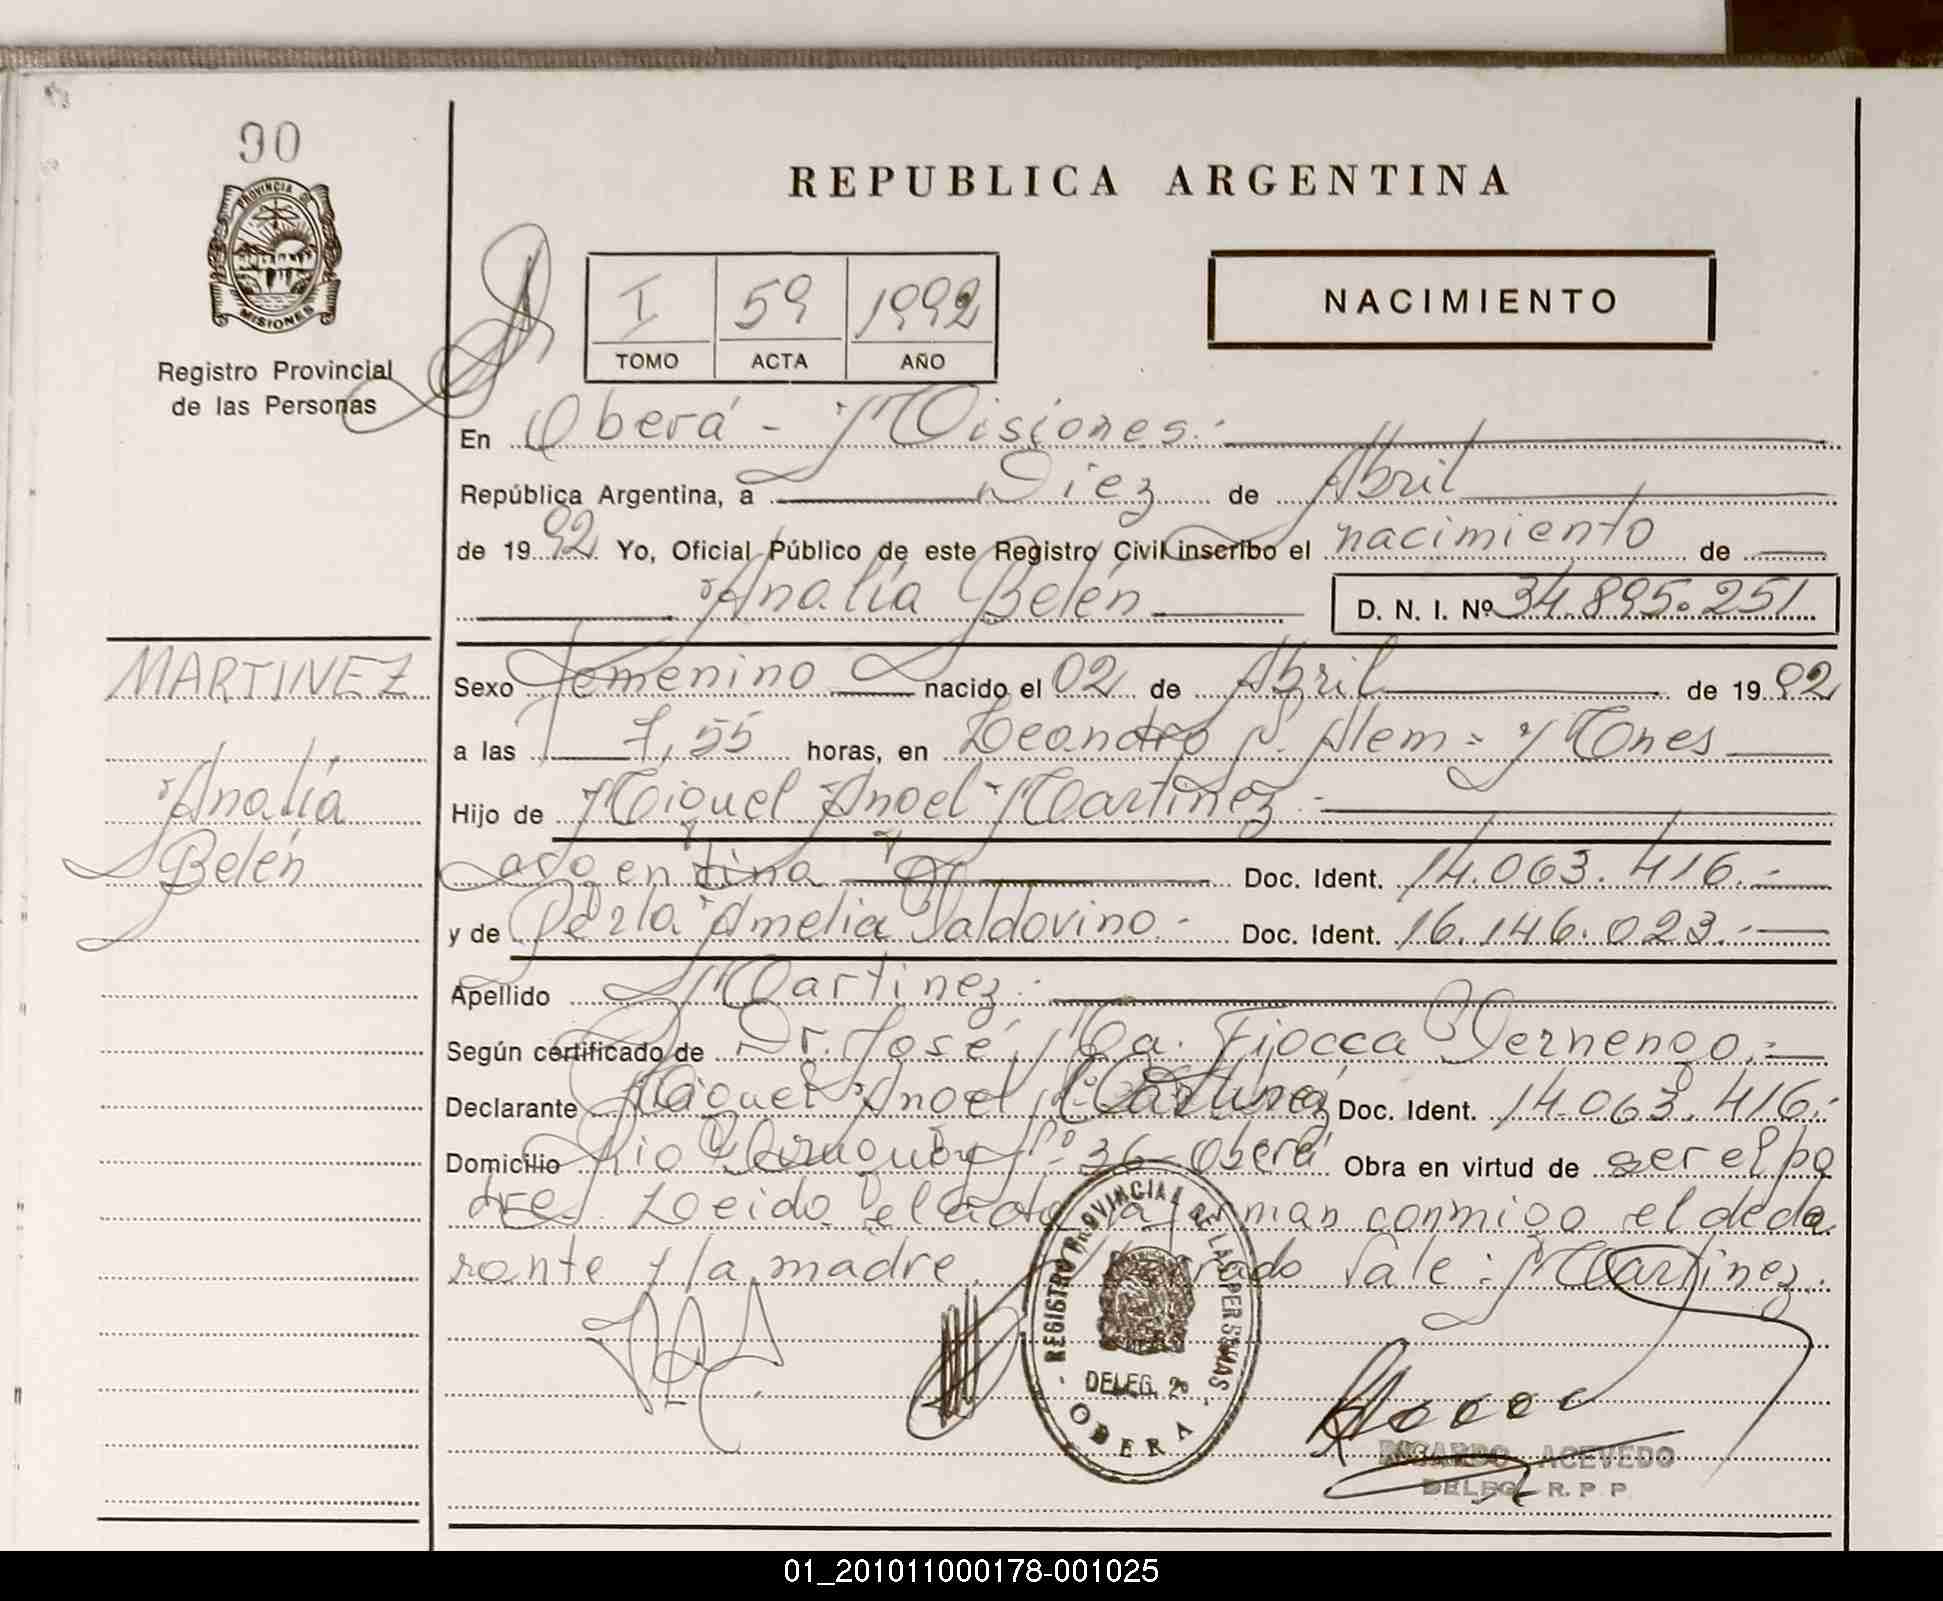 90
PROVINCIA DE
MISIONES
Registro Provincial
de las Personas
REPUBLICA ARGENTINA
I 59 1992
TOMO ACTA AÑO
NACIMIENTO
En Oberá - Misiones.-
República Argentina, a Diez de Abril
de 1992. Yo, Oficial Público de este Registro Civil inscribo el nacimiento de
Analía Belén D. N. I. Nº 34.895.251
MARTINEZ
Analía
Belén
Sexo Femenino nacido el 02 de Abril de 1992
a las 7,55 horas, en Leandro N. Alem - Mnes
Hijo de Miguel Angel Martinez.-
argentina Doc. Ident. 14.063.416.-
y de Perla Amelia Valdovino.- Doc. Ident. 16.146.023.-
Apellido Martinez.-
Según certificado de Dr. José Ma. Fiocca Vernengo.-
Declarante Miguel Angel Martinez Doc. Ident. 14.063.416.-
Domicilio Rio Uruguay Nº 36 - Oberá Obra en virtud de ser el pa
dre. Leido el acta la firman conmigo el decla
rante y la madre. Vale: Martinez.
REGISTRO PROVINCIAL DE LAS PERSONAS
DELEG. 2º
OBERA
RICARDO ACEVEDO
DELEG. R. P. P
01_201011000178-001025